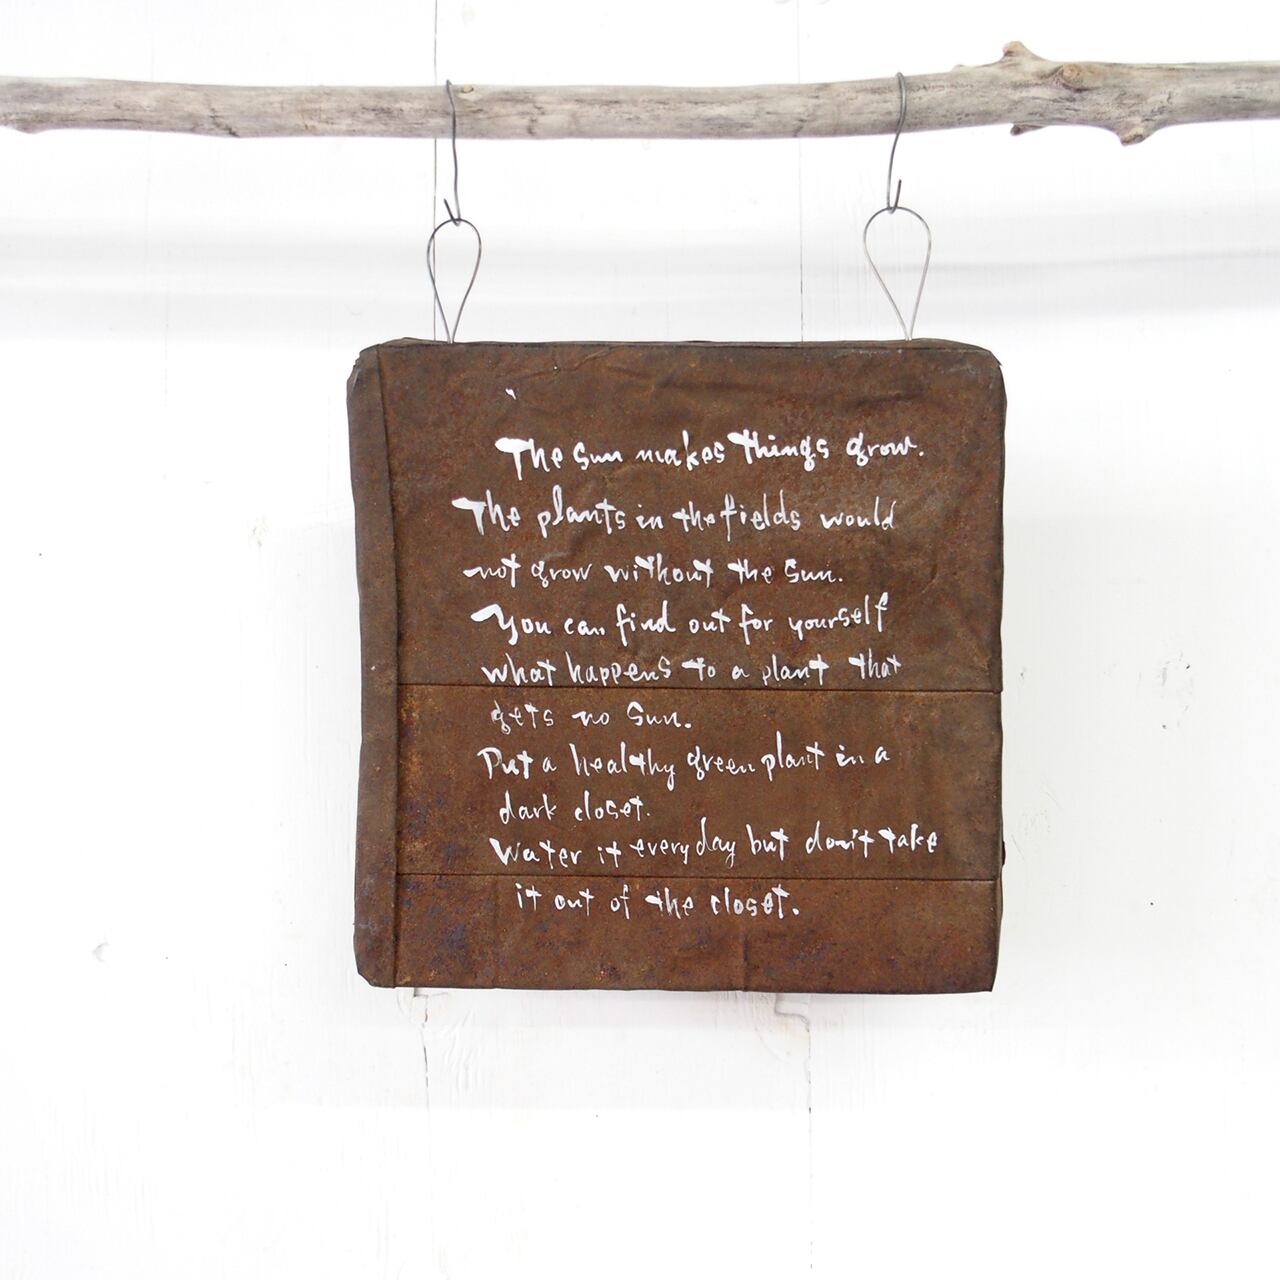 The Sun makes things grow.
The plants in the fields would
not grow without the Sun.
You can find out for yourself
what happens to a plant that
gets no Sun.
Put a healthy green plant in a
dark closet.
Water it every day but don't take
it out of the closet.